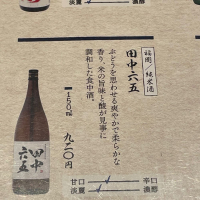 淡麗 濃醇
福岡/純米酒
田中六五
ぶどうを思わせる爽やかで柔らかな
香り。米の旨味と酸が見事に
調和した食中酒。
150ml
九二〇円
田中
六五
甘口 辛口
淡麗 濃醇